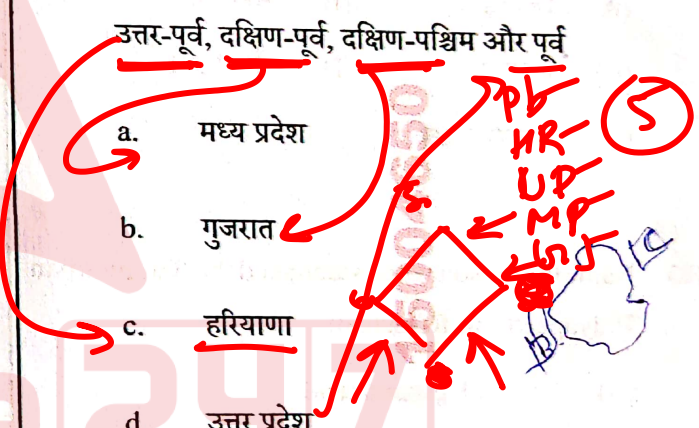 उत्तर-पूर्व, दक्षिण-पूर्व, दक्षिण-पश्चिम और पूर्व
a. मध्य प्रदेश
b. गुजरात
c. हरियाणा
d. उत्तर प्रदेश
Pb
HR
UP
MP
5